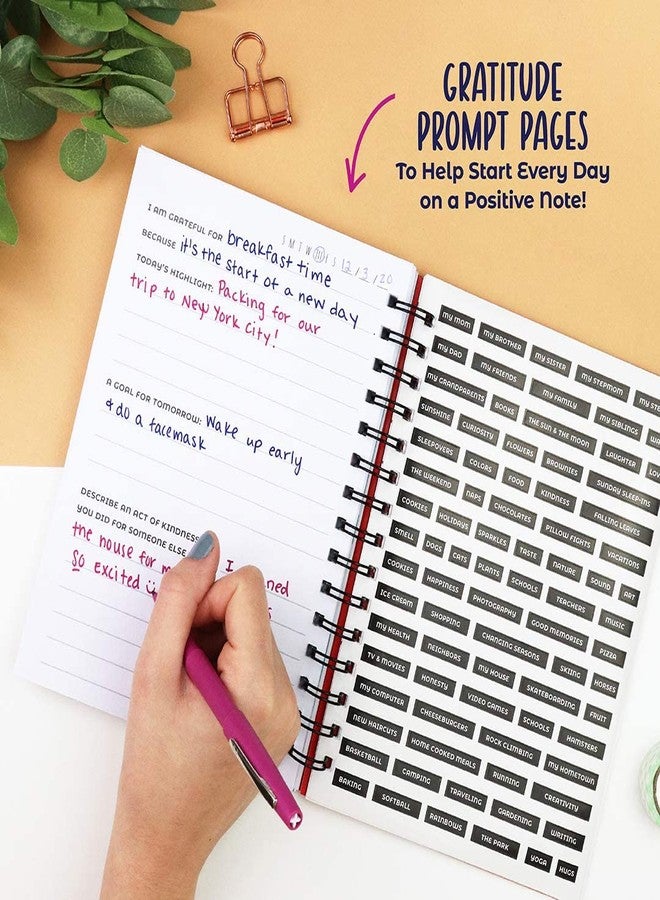 GRATITUDE
PROMPT PAGES
To Help Start Every Day
on a Positive Note!
S M T W Th F S 12 / 3 / 20
I AM GRATEFUL FOR breakfast time
BECAUSE it's the start of a new day.
TODAY'S HIGHLIGHT: Packing for our
trip to New York City!
A GOAL FOR TOMORROW: Wake up early
& do a facemask
DESCRIBE AN ACT OF KINDNESS
YOU DID FOR SOMEONE ELSE I
the house for
So excited
MY MOM MY BROTHER MY SISTER MY STEPMOM
MY DAD MY FRIENDS MY FAMILY MY SIBLINGS
MY GRANDPARENTS BOOKS THE SUN & THE MOON LAUGHTER
SUNSHINE CURIOSITY FLOWERS BROWNIES SUNDAY SLEEP-INS
SLEEPOVERS COLORS FOOD KINDNESS FALLING LEAVES
THE WEEKEND NAPS CHOCOLATES PILLOW FIGHTS VACATIONS
COOKIES HOLIDAYS SPARKLES TASTE NATURE SOUND ART
SMELL DOGS CATS PLANTS SCHOOLS TEACHERS MUSIC
COOKIES HAPPINESS PHOTOGRAPHY GOOD MEMORIES PIZZA
ICE CREAM SHOPPING CHANGING SEASONS SKIING HORSES
MY HEALTH NEIGHBORS MY HOUSE SKATEBOARDING FRUIT
TV & MOVIES HONESTY VIDEO GAMES SCHOOLS HAMSTERS
MY COMPUTER CHEESEBURGERS ROCK CLIMBING MY HOMETOWN
NEW HAIRCUTS HOME COOKED MEALS RUNNING CREATIVITY
BASKETBALL CAMPING TRAVELING GARDENING WRITING
BAKING SOFTBALL RAINBOWS THE PARK YOGA HUGS